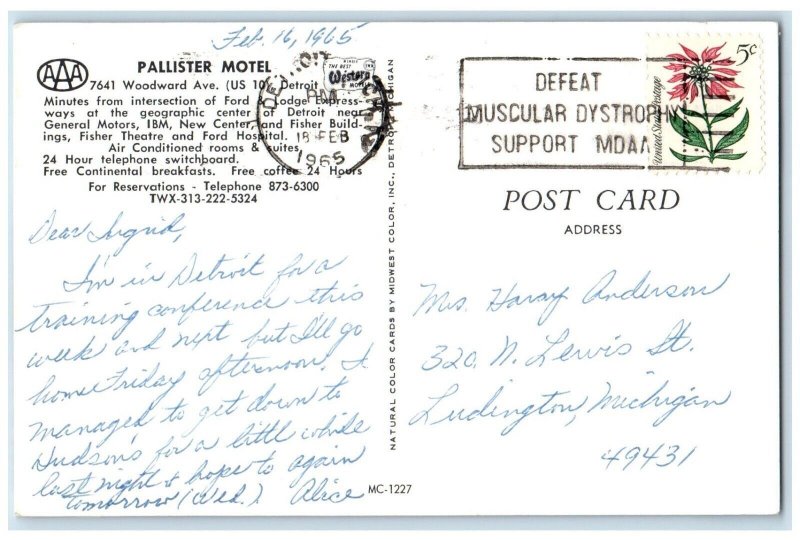 Feb. 16, 1965
AAA
PALLISTER MOTEL
7641 Woodward Ave. (US 10) Detroit
Minutes from intersection of Ford & Lodge Express-
ways at the geographic center of Detroit near
General Motors, IBM, New Center, and Fisher Build-
ings, Fisher Theatre and Ford Hospital.
Air Conditioned rooms & suites.
24 Hour telephone switchboard.
Free Continental breakfasts. Free coffee 24 Hours
For Reservations - Telephone 873-6300
TWX-313-222-5324
Best Western
MOTELS
DETROIT, MICH.
PM
16 FEB
1965
DEFEAT
MUSCULAR DYSTROPHY
SUPPORT MDAA
5c
United States Postage
Dear Ingrid,
I'm in Detroit for a
training conference this
week and next but I'll go
home Friday afternoon. I
managed to get down to
Hudson's for a little while
last night & hope to again
tomorrow (Wed.). Alice
NATURAL COLOR CARDS BY MIDWEST COLOR, INC., DETROIT, MICHIGAN
POST CARD
ADDRESS
Mrs. Harry Anderson
320 N. Lewis St.
Ludington, Michigan
49431
MC-1227